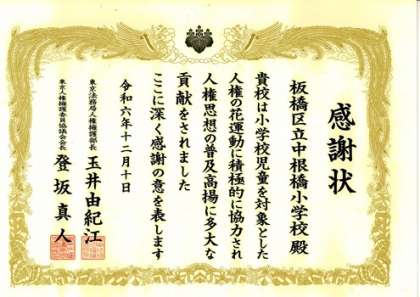 感謝状
板橋区立中根橋小学校 殿
貴校は小学校児童を対象とした
人権の花運動に積極的に協力され
人権思想の普及高揚に多大な
貢献をされました
ここに深く感謝の意を表します
令和六年十二月十日
東京法務局人権擁護部長 玉井由紀江
東京人権擁護委員協議会会長 登坂真人